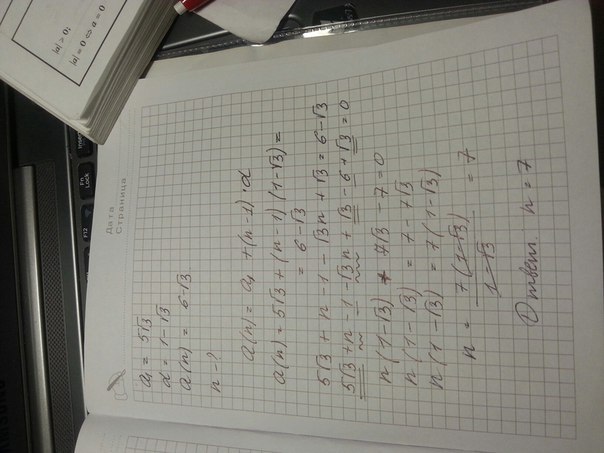 |a| > 0;
|a| = 0 ⇔ a = 0
Дата
Страница
a₁ = 5√3
d = 1-√3
a(n) = 6-√3
n - ?
a(n) = a₁ + (n-1)·d
a(n) = 5√3 + (n-1)(1-√3) =
= 6-√3
5√3 + n - 1 - √3n + √3 = 6-√3
5√3 + n - 1 - √3n + √3 - 6 + √3 = 0
n(1-√3) + 7√3 - 7 = 0
n(1-√3) = 7 - 7√3
n(1-√3) = 7(1-√3)
n = 7(1-√3) / 1-√3 = 7
Ответ. n = 7
Fn
Lock
F12